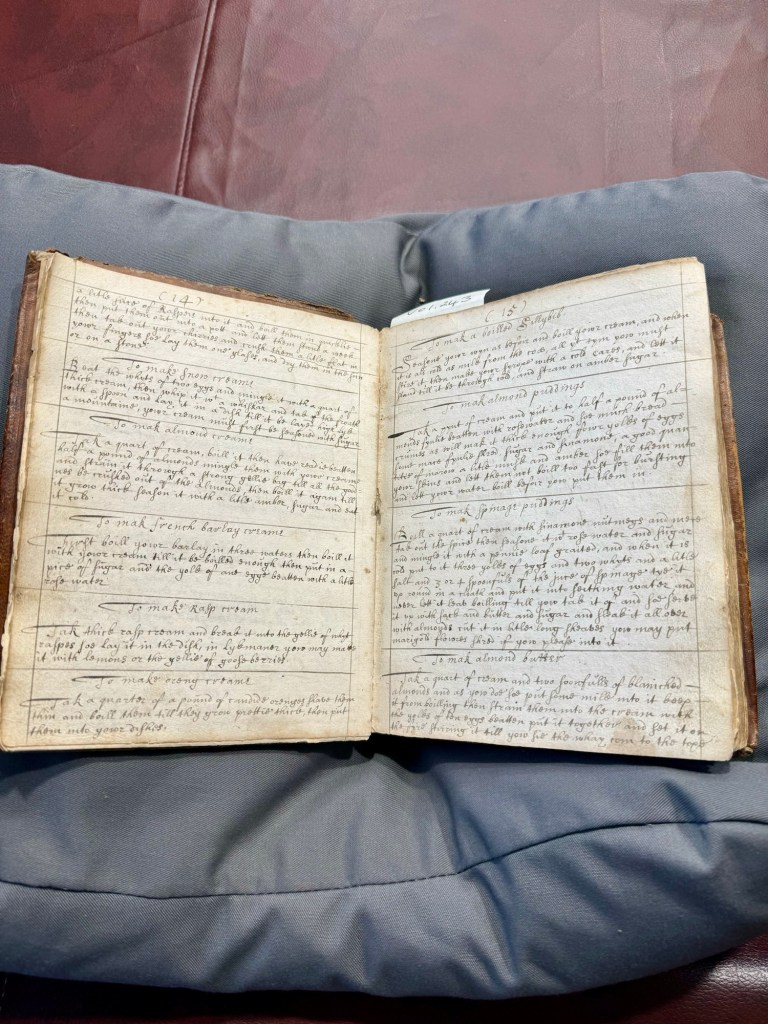 (14)
a litle juce of Raspers into it and ball them in
then put them out into a pot and let them stan a week
then tak out your cherries and crush them a litle flat in
your fingers soe lay them one glases, and dry them in the sun
or on a stove
To make snow creame
Beat the whits of two eggs and mingle it with a quart of
thick cream, then whip it with a whiskar and tak of the froath
with a spoon and lay it in a dish till it be layed high lyk
a mountaine, your cream must first be seasoned with sugar
To mak almond creame
Tak a quart of cream, boill it then have ready beatten
half a pound of almonds mingle them with your creame
and strain it through a strong gellie bag till all the
be crushed out of the almonds, then boill it again till
it grow thick season it with a litle amber, sugar and eat
cold
To mak french barlay creame
first boill your barlay in three waters then boill it
with your cream till it be boilled enough then put in a
pice of sugar and the yolk of ane egge beatten with a litle
rose water
To make Rasp cream
Tak thick rasp cream and break it into the gellie of
raspes soe lay it in the dish, in lykmaner you may make
it with lemons or the gellie of gooseberries
To make oreng creame
Tak a quarter of a pound of candide orenges slave them
thin and boill them till they grow prettie thick, then put
them into your dishes.
243
(15)
To mak a boilled Sillybib
Seasone your wyn as befor and boill your cream, and when
it is als cold as milk from the cow, als yt wyn you must
then mak your with a cod cares, and lett it
stand till it be through cold, and straw on amber sugar
To mak almond puddings
Tak a quart of cream and put it to half a pound of al-
monds fynlie beatten with rosewater and soe much bread
as will mak it thick enough four yolks of eggs
some marow fynlie shred, sugar and sinamone, a good quan-
of marow a litle musk and amber soe fill them into
your skins and let them not boill too fast for bursting
and let your water boill befor you put them in
To mak spinage puddings
Boill a quart of cream with sinamone nutmegs and mace
tak out the spice then seasone it with rose water and sugar
and mingle it with a pennie loaf graited, and when it is
cold put to it three yolks of eggs and two whyts and a litle
salt and 3 or 4 spoonfulls of the juce of spinage tye it
up round in a cloath and put it into seething water and
never lett it leat boilling till you tak it of and soe serve
it up with sack and butter and sugar and steak it all over
with almonds cut it in litle long you may put
marigold flowres shred if you please into it
To mak almond butter
Tak a quart of cream and two handfulls of blanched
almonds and as you doe soe put some milk into it keep
it from boilling then strain them into the cream with
the yolks of ten eggs beatten put it together and set it on
the fyre stirring it till you sie the whay com to the tope